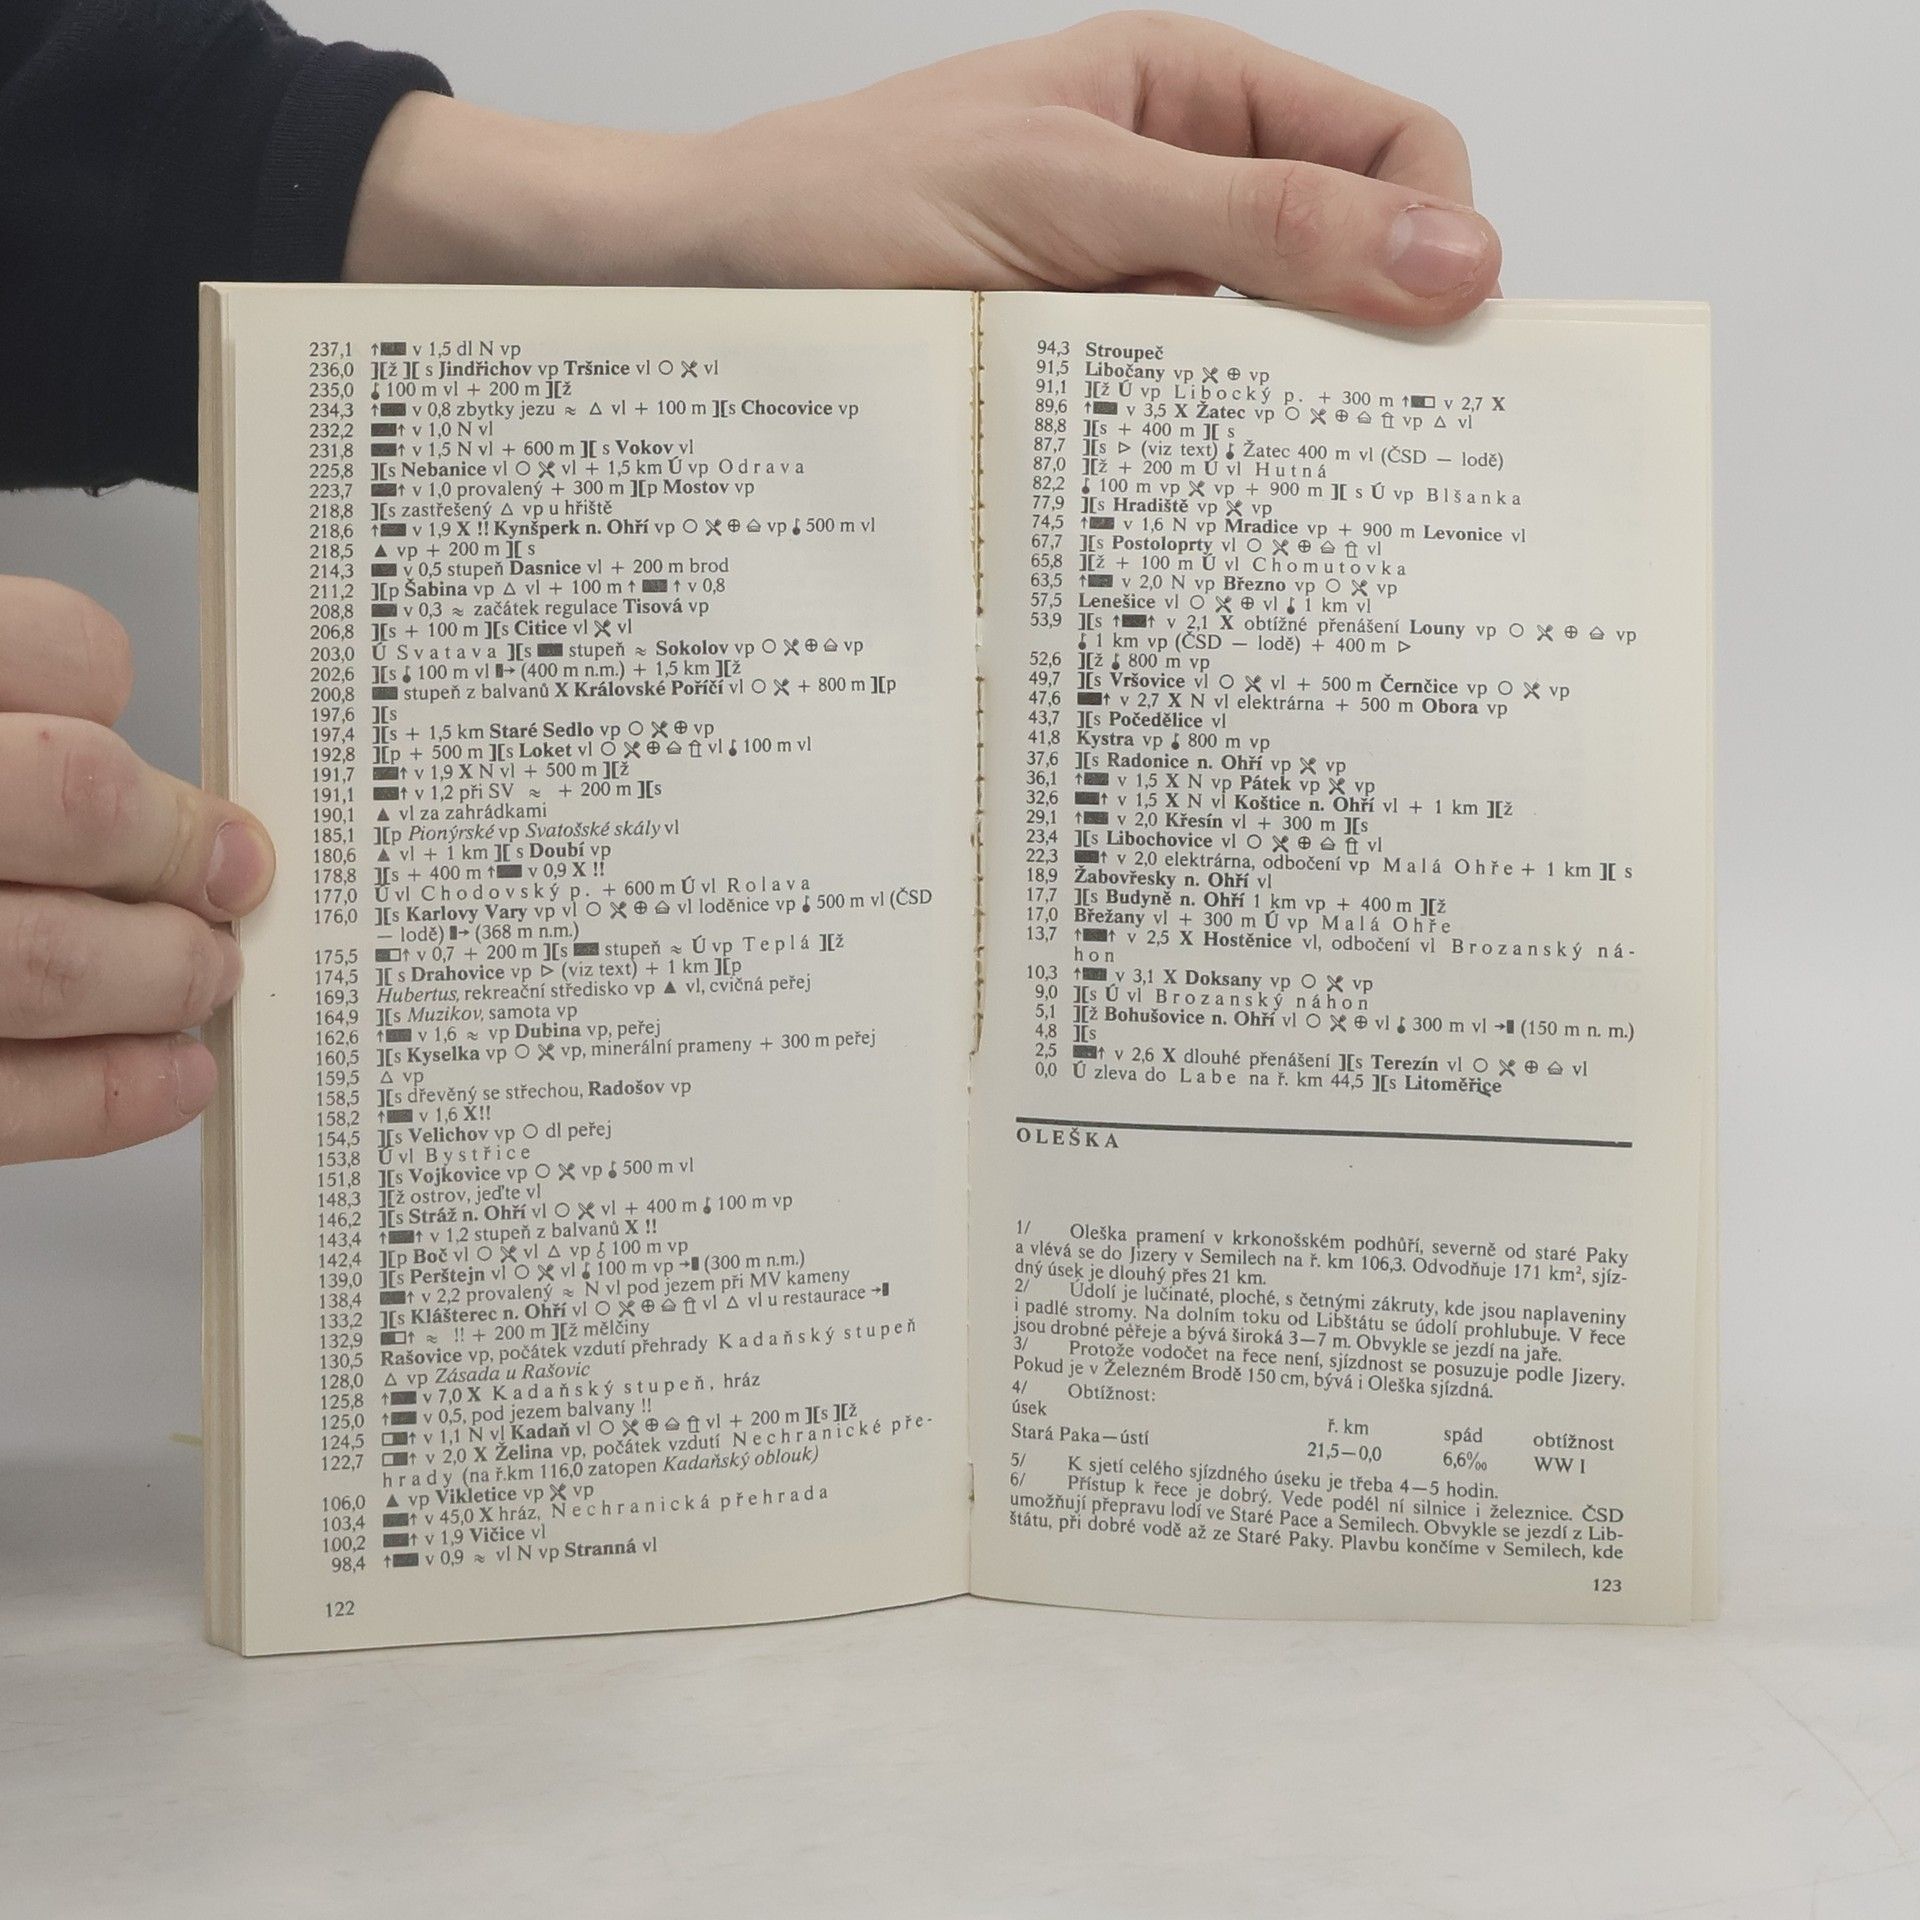 237,1 ↑▬ v 1,5 dl N vp
236,0 ][ž ][ s Jindřichov vp Tršnice vl ○ ✕ vl
235,0 100 m vl + 200 m ][ž
234,3 ↑▬ v 0,8 zbytky jezu ≈ △ vl + 100 m ][s Chocovice vp
232,2 ▬↑ v 1,0 N vl
231,8 ▬↑ v 1,5 N vl + 600 m ][ s Vokov vl
225,8 ][s Nebanice vl ○ ✕ vl + 1,5 km Ú vp Odrava
223,7 ▬↑ v 1,0 provalený + 300 m ][p Mostov vp
218,8 ][s zastřešený △ vp u hřiště
218,6 ↑▬ v 1,9 X !! Kynšperk n. Ohří vp ○ ✕ ⊕ ⌂ vp 500 m vl
218,5 ▲ vp + 200 m ][ s
214,3 ▬ v 0,5 stupeň Dasnice vl + 200 m brod
211,2 ][p Šabina vp △ vl + 100 m ↑ ▬ ↑ v 0,8
208,8 ▬ v 0,3 ≈ začátek regulace Tisová vp
206,8 ][s + 100 m ][s Citice vl ✕ vl
203,0 Ú Svatava ][s ▬ stupeň ≈ Sokolov vp ○ ✕ ⊕ ⌂ vp
202,6 ][s 100 m vl ▮→ (400 m n.m.) + 1,5 km ][ž
200,8 ▬ stupeň z balvanů X Královské Poříčí vl ○ ✕ + 800 m ][p
197,6 ][s
197,4 ][s + 1,5 km Staré Sedlo vp ○ ✕ ⊕ vp
192,8 ][p + 500 m ][s Loket vl ○ ✕ ⊕ ⌂ ⇑ vl 100 m vl
191,7 ▬↑ v 1,9 X N vl + 500 m ][ž
191,1 ▬↑ v 1,2 při SV ≈ + 200 m ][s
190,1 ▲ vl za zahrádkami
185,1 ][p Pionýrské vp Svatošské skály vl
180,6 ▲ vl + 1 km ][ s Doubí vp
178,8 ][s + 400 m ↑▬ v 0,9 X !!
177,0 Ú vl Chodovský p. + 600 m Ú vl Rolava
176,0 ][s Karlovy Vary vp vl ○ ✕ ⊕ ⌂ vl loděnice vp 500 m vl (ČSD
— lodě) ▮→ (368 m n.m.)
175,5 ▬□↑ v 0,7 + 200 m ][s ▬ stupeň ≈ Ú vp Teplá ][ž
174,5 ][ s Drahovice vp ▷ (viz text) + 1 km ][p
169,3 Hubertus, rekreační středisko vp ▲ vl, cvičná peřej
164,9 ][s Muzikov, samota vp
162,6 ↑▬ v 1,6 ≈ vp Dubina vp, peřej
160,5 ][s Kyselka vp ○ ✕ vp, minerální prameny + 300 m peřej
159,5 △ vp
158,5 ][s dřevěný se střechou, Radošov vp
158,2 ↑▬ v 1,6 X!!
154,5 ][s Velichov vp ○ dl peřej
153,8 Ú vl Bystřice
151,8 ][s Vojkovice vp ○ ✕ vp 500 m vl
148,3 ][ž ostrov, jeďte vl
146,2 ][s Stráž n. Ohří vl ○ ✕ vl + 400 m 100 m vp
143,4 ↑▬↑ v 1,2 stupeň z balvanů X !!
142,4 ][p Boč vl ○ ✕ vl △ vp 100 m vp
139,0 ][s Perštejn vl ○ ✕ vl 100 m vp →▮ (300 m n.m.)
138,4 ▬↑ v 2,2 provalený ≈ N vl pod jezem při MV kameny
133,2 ][s Klášterec n. Ohří vl ○ ✕ ⊕ ⌂ ⇑ vl △ vl u restaurace →▮
132,9 ▬□↑ ≈ !! + 200 m ][ž mělčiny
130,5 Rašovice vp, počátek vzdutí přehrady Kadaňský stupeň
128,0 △ vp Zásada u Rašovic
125,8 ↑▬ v 7,0 X Kadaňský stupeň, hráz
125,0 ↑▬ v 0,5, pod jezem balvany !!
124,5 □▬↑ v 1,1 N vl Kadaň vl ○ ✕ ⊕ ⌂ ⇑ vl + 200 m ][s ][ž
122,7 □▬↑ v 2,0 X Želina vp, počátek vzdutí Nechranické pře-
hrady (na ř.km 116,0 zatopen Kadaňský oblouk)
106,0 ▲ vp Vikletice vp ✕ vp
103,4 ▬↑ v 45,0 X hráz, Nechranická přehrada
100,2 ▬↑ v 1,9 Vičice vl
98,4 ↑▬ v 0,9 ≈ vl N vp Stranná vl
122
94,3 Stroupeč
91,5 Libočany vp ✕ ⊕ vp
91,1 ][ž Ú vp Libocký p. + 300 m ↑▬□ v 2,7 X
89,6 ↑▬ v 3,5 X Žatec vp ○ ✕ ⊕ ⌂ ⇑ vp △ vl
88,8 ][s + 400 m ][ s
87,7 ][s ▷ (viz text) Žatec 400 m vl (ČSD — lodě)
87,0 ][ž + 200 m Ú vl Hutná
82,2 100 m vp ✕ vp + 900 m ][ s Ú vp Blšanka
77,9 ][s Hradiště vp ✕ vp
74,5 ↑▬ v 1,6 N vp Mradice vp + 900 m Levonice vl
67,7 ][s Postoloprty vl ○ ✕ ⊕ ⌂ ⇑ vl
65,8 ][ž + 100 m Ú vl Chomutovka
63,5 ↑▬ v 2,0 N vp Březno vp ○ ✕ vp
57,5 Lenešice vl ○ ✕ ⊕ vl 1 km vl
53,9 ][s ↑▬↑ v 2,1 X obtížné přenášení Louny vp ○ ✕ ⊕ ⌂ vp
1 km vp (ČSD — lodě) + 400 m ▷
52,6 ][ž 800 m vp
49,7 ][s Vršovice vl ○ ✕ vl + 500 m Černčice vp ○ ✕ vp
47,6 ▬↑ v 2,7 X N vl elektrárna + 500 m Obora vp
43,7 ][s Počedělice vl
41,8 Kystra vp 800 m vp
37,6 ][s Radonice n. Ohří vp ✕ vp
36,1 ↑▬ v 1,5 X N vp Pátek vp ✕ vp
32,6 ▬↑ v 1,5 X N vl Koštice n. Ohří vl + 1 km ][ž
29,1 ↑▬ v 2,0 Křesín vl + 300 m ][s
23,4 ][s Libochovice vl ○ ✕ ⊕ ⌂ ⇑ vl
22,3 ▬↑ v 2,0 elektrárna, odbočení vp Malá Ohře + 1 km ][ s
18,9 Žabovřesky n. Ohří vl
17,7 ][s Budyně n. Ohří 1 km vp + 400 m ][ž
17,0 Břežany vl + 300 m Ú vp Malá Ohře
13,7 ↑▬↑ v 2,5 X Hostěnice vl, odbočení vl Brozanský ná-
hon
10,3 ↑▬ v 3,1 X Doksany vp ○ ✕ vp
9,0 ][s Ú vl Brozanský náhon
5,1 ][ž Bohušovice n. Ohří vl ○ ✕ ⊕ vl 300 m vl →▮ (150 m n. m.)
4,8 ][s
2,5 ▬↑ v 2,6 X dlouhé přenášení ][s Terezín vl ○ ✕ ⊕ ⌂ vl
0,0 Ú zleva do Labe na ř. km 44,5 ][s Litoměřice
OLEŠKA
1/ Oleška pramení v krkonošském podhůří, severně od staré Paky
a vlévá se do Jizery v Semilech na ř. km 106,3. Odvodňuje 171 km², sjíz-
dný úsek je dlouhý přes 21 km.
2/ Údolí je lučinaté, ploché, s četnými zákruty, kde jsou naplaveniny
i padlé stromy. Na dolním toku od Libštátu se údolí prohlubuje. V řece
jsou drobné peřeje a bývá široká 3—7 m. Obvykle se jezdí na jaře.
3/ Protože vodočet na řece není, sjízdnost se posuzuje podle Jizery.
Pokud je v Železném Brodě 150 cm, bývá i Oleška sjízdná.
4/ Obtížnost:
úsek ř. km spád obtížnost
Stará Paka—ústí 21,5—0,0 6,6‰ WW I
5/ K sjetí celého sjízdného úseku je třeba 4—5 hodin.
6/ Přístup k řece je dobrý. Vede podél ní silnice i železnice. ČSD
umožňují přepravu lodí ve Staré Pace a Semilech. Obvykle se jezdí z Lib-
štátu, při dobré vodě až ze Staré Paky. Plavbu končíme v Semilech, kde
123